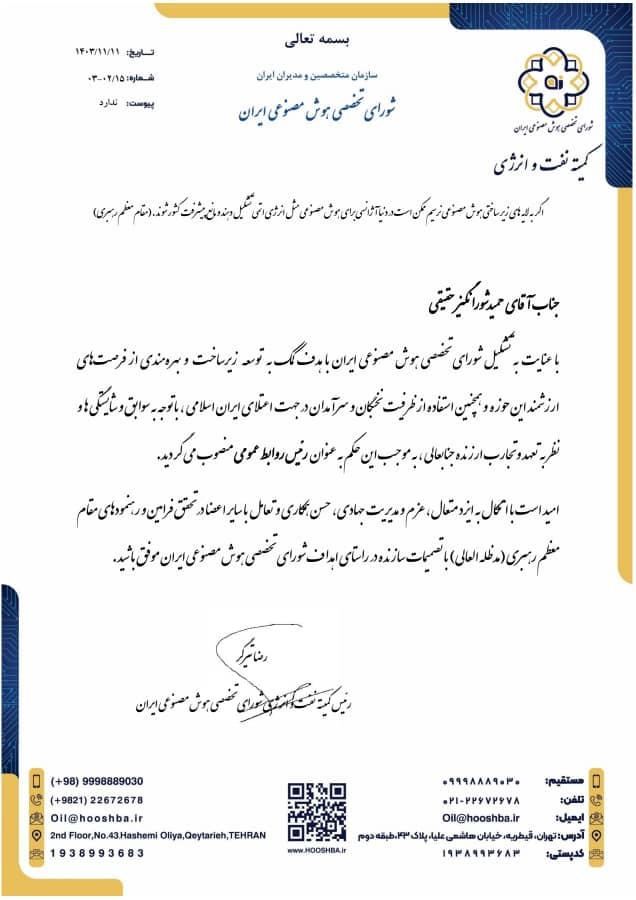 بسمه تعالی
سازمان متخصصین و مدیران ایران
شورای تخصصی هوش مصنوعی ایران
تاریخ: ۱۴۰۳/۱۱/۱۱
شماره: ۰۳-۰۲/۱۵
پیوست: ندارد
شورای تخصصی هوش مصنوعی ایران
کمیته نفت و انرژی
اگر به لایه های زیرساختی هوش مصنوعی نرسیم ممکن است در دنیا آژانسی برای هوش مصنوعی مثل انرژی اتمی تشکیل دهند و مانع پیشرفت کشور شوند. (مقام معظم رهبری)
جناب آقای حمید شورانگیز حقیقی
با عنایت به تشکیل شورای تخصصی هوش مصنوعی ایران با هدف کمک به توسعه زیرساخت و بهره مندی از فرصت های
ارزشمند این حوزه و همچنین استفاده از ظرفیت نخبگان و سرآمدان در جهت اعتلای ایران اسلامی، با توجه به سوابق و شایستگی ها و
نظر به تعهد و تجارب ارزنده جنابعالی، به موجب این حکم به عنوان رئیس روابط عمومی منصوب می گردید.
امید است با اتکال به ایزد متعال، عزم و مدیریت جهادی، حسن همکاری و تعامل با سایر اعضا در تحقق فرامین و رهنمودهای مقام
معظم رهبری (مدظله العالی) با تصمیمات سازنده در راستای اهداف شورای تخصصی هوش مصنوعی ایران موفق باشید.
رضا تیرگر
رئیس کمیته نفت و انرژی شورای تخصصی هوش مصنوعی ایران
مستقیم: ۰۹۹۹۸۸۸۹۰۳۰
تلفن: ۰۲۱-۲۲۶۷۲۶۷۸
ایمیل: Oil@hooshba.ir
آدرس: تهران، قیطریه، خیابان هاشمی علیا، پلاک ۴۳، طبقه دوم
کدپستی: ۱۹۳۸۹۹۳۶۸۳
www.HOOSHBA.ir
(+98) 9998889030
(+9821) 22672678
Oil@hooshba.ir
2nd Floor,No.43.Hashemi Oliya,Qeytarieh,TEHRAN
1938993683